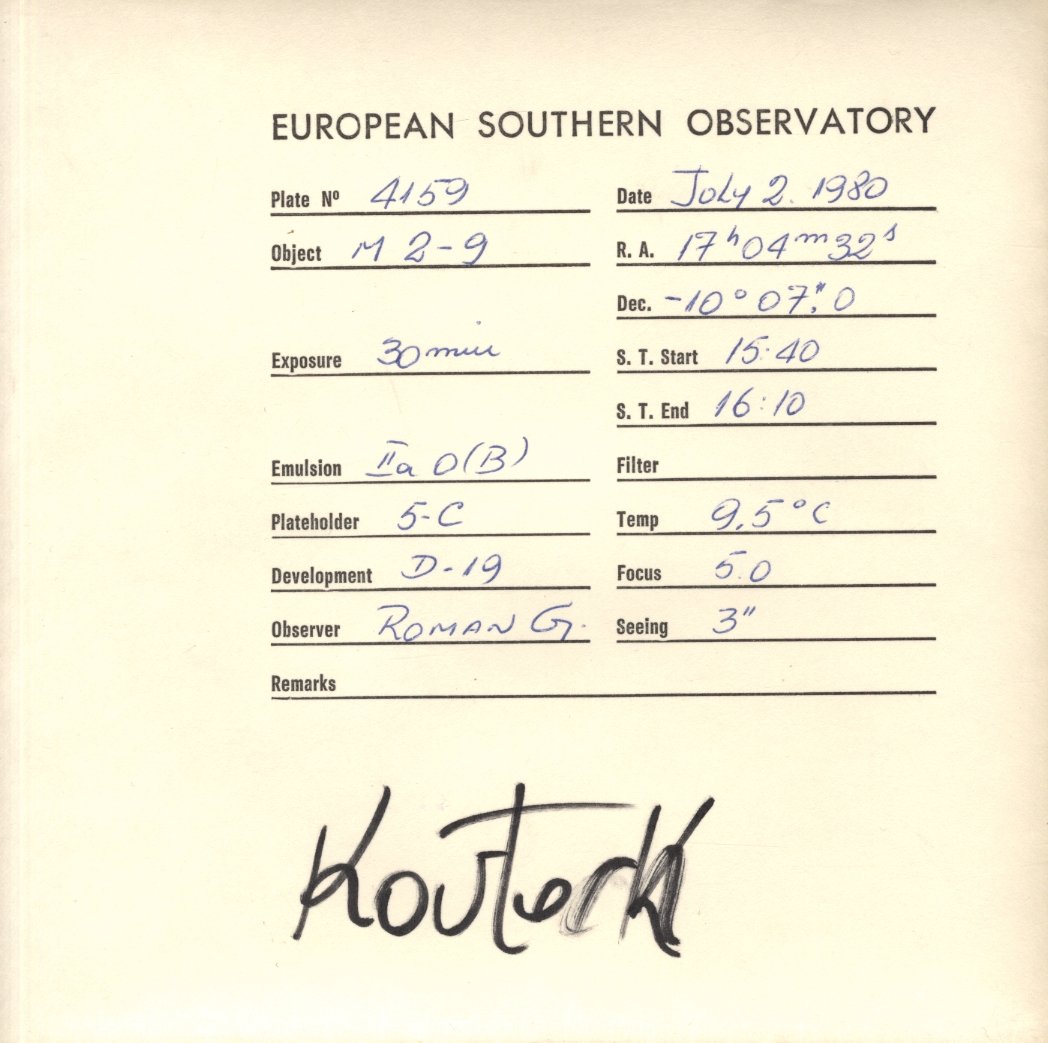 EUROPEAN SOUTHERN OBSERVATORY
Plate Nº 4159 Date July 2. 1980
Object M 2-9 R. A. 17ʰ04ᵐ32ˢ
Dec. -10° 07". 0
Exposure 30 min S. T. Start 15:40
S. T. End 16:10
Emulsion IIa O(B) Filter
Plateholder 5-C Temp 9,5°C
Development D-19 Focus 5.0
Observer ROMAN G. Seeing 3"
Remarks
Kouteck